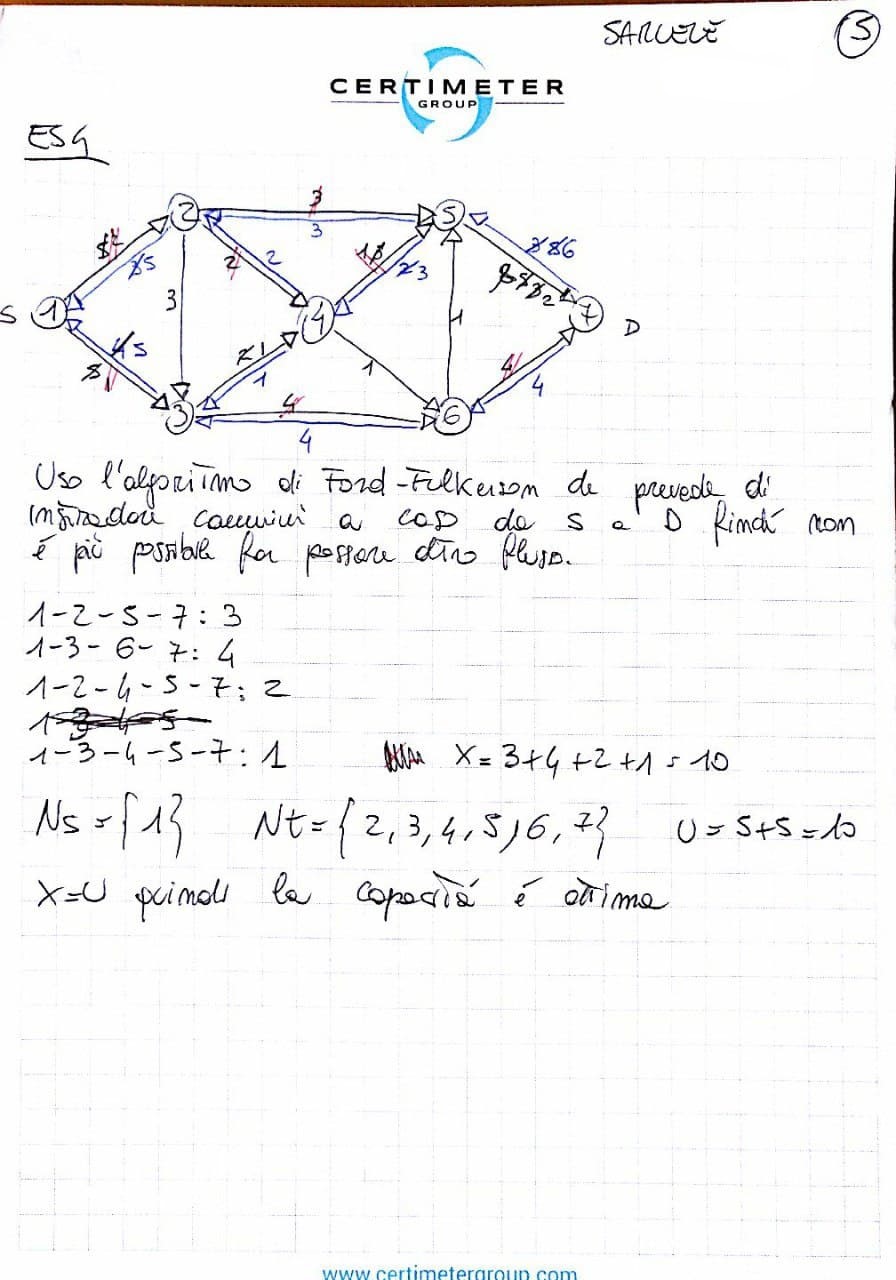 SARCLETÈ
5
CERTIMETER
GROUP
ES4
2
3
5
3
5
2
2
3
3
8 6
2
S
1
4
7
D
3
4 5
1
1
1
1
4
4
3
4
6
4
Uso l'algoritmo di Ford-Fulkerson che prevede di
instradare cammini a caso da S a D finché non
é più possibile far passare altro flusso.
1-2-5-7: 3
1-3-6-7: 4
1-2-4-5-7: 2
1-3-4-5
1-3-4-5-7: 1 X= 3+4+2+1 = 10
Ns = {1} Nt = {2,3,4,5,6,7} U = 5+5=10
X=U quindi la capacità é ottima
www.certimetergroup.com